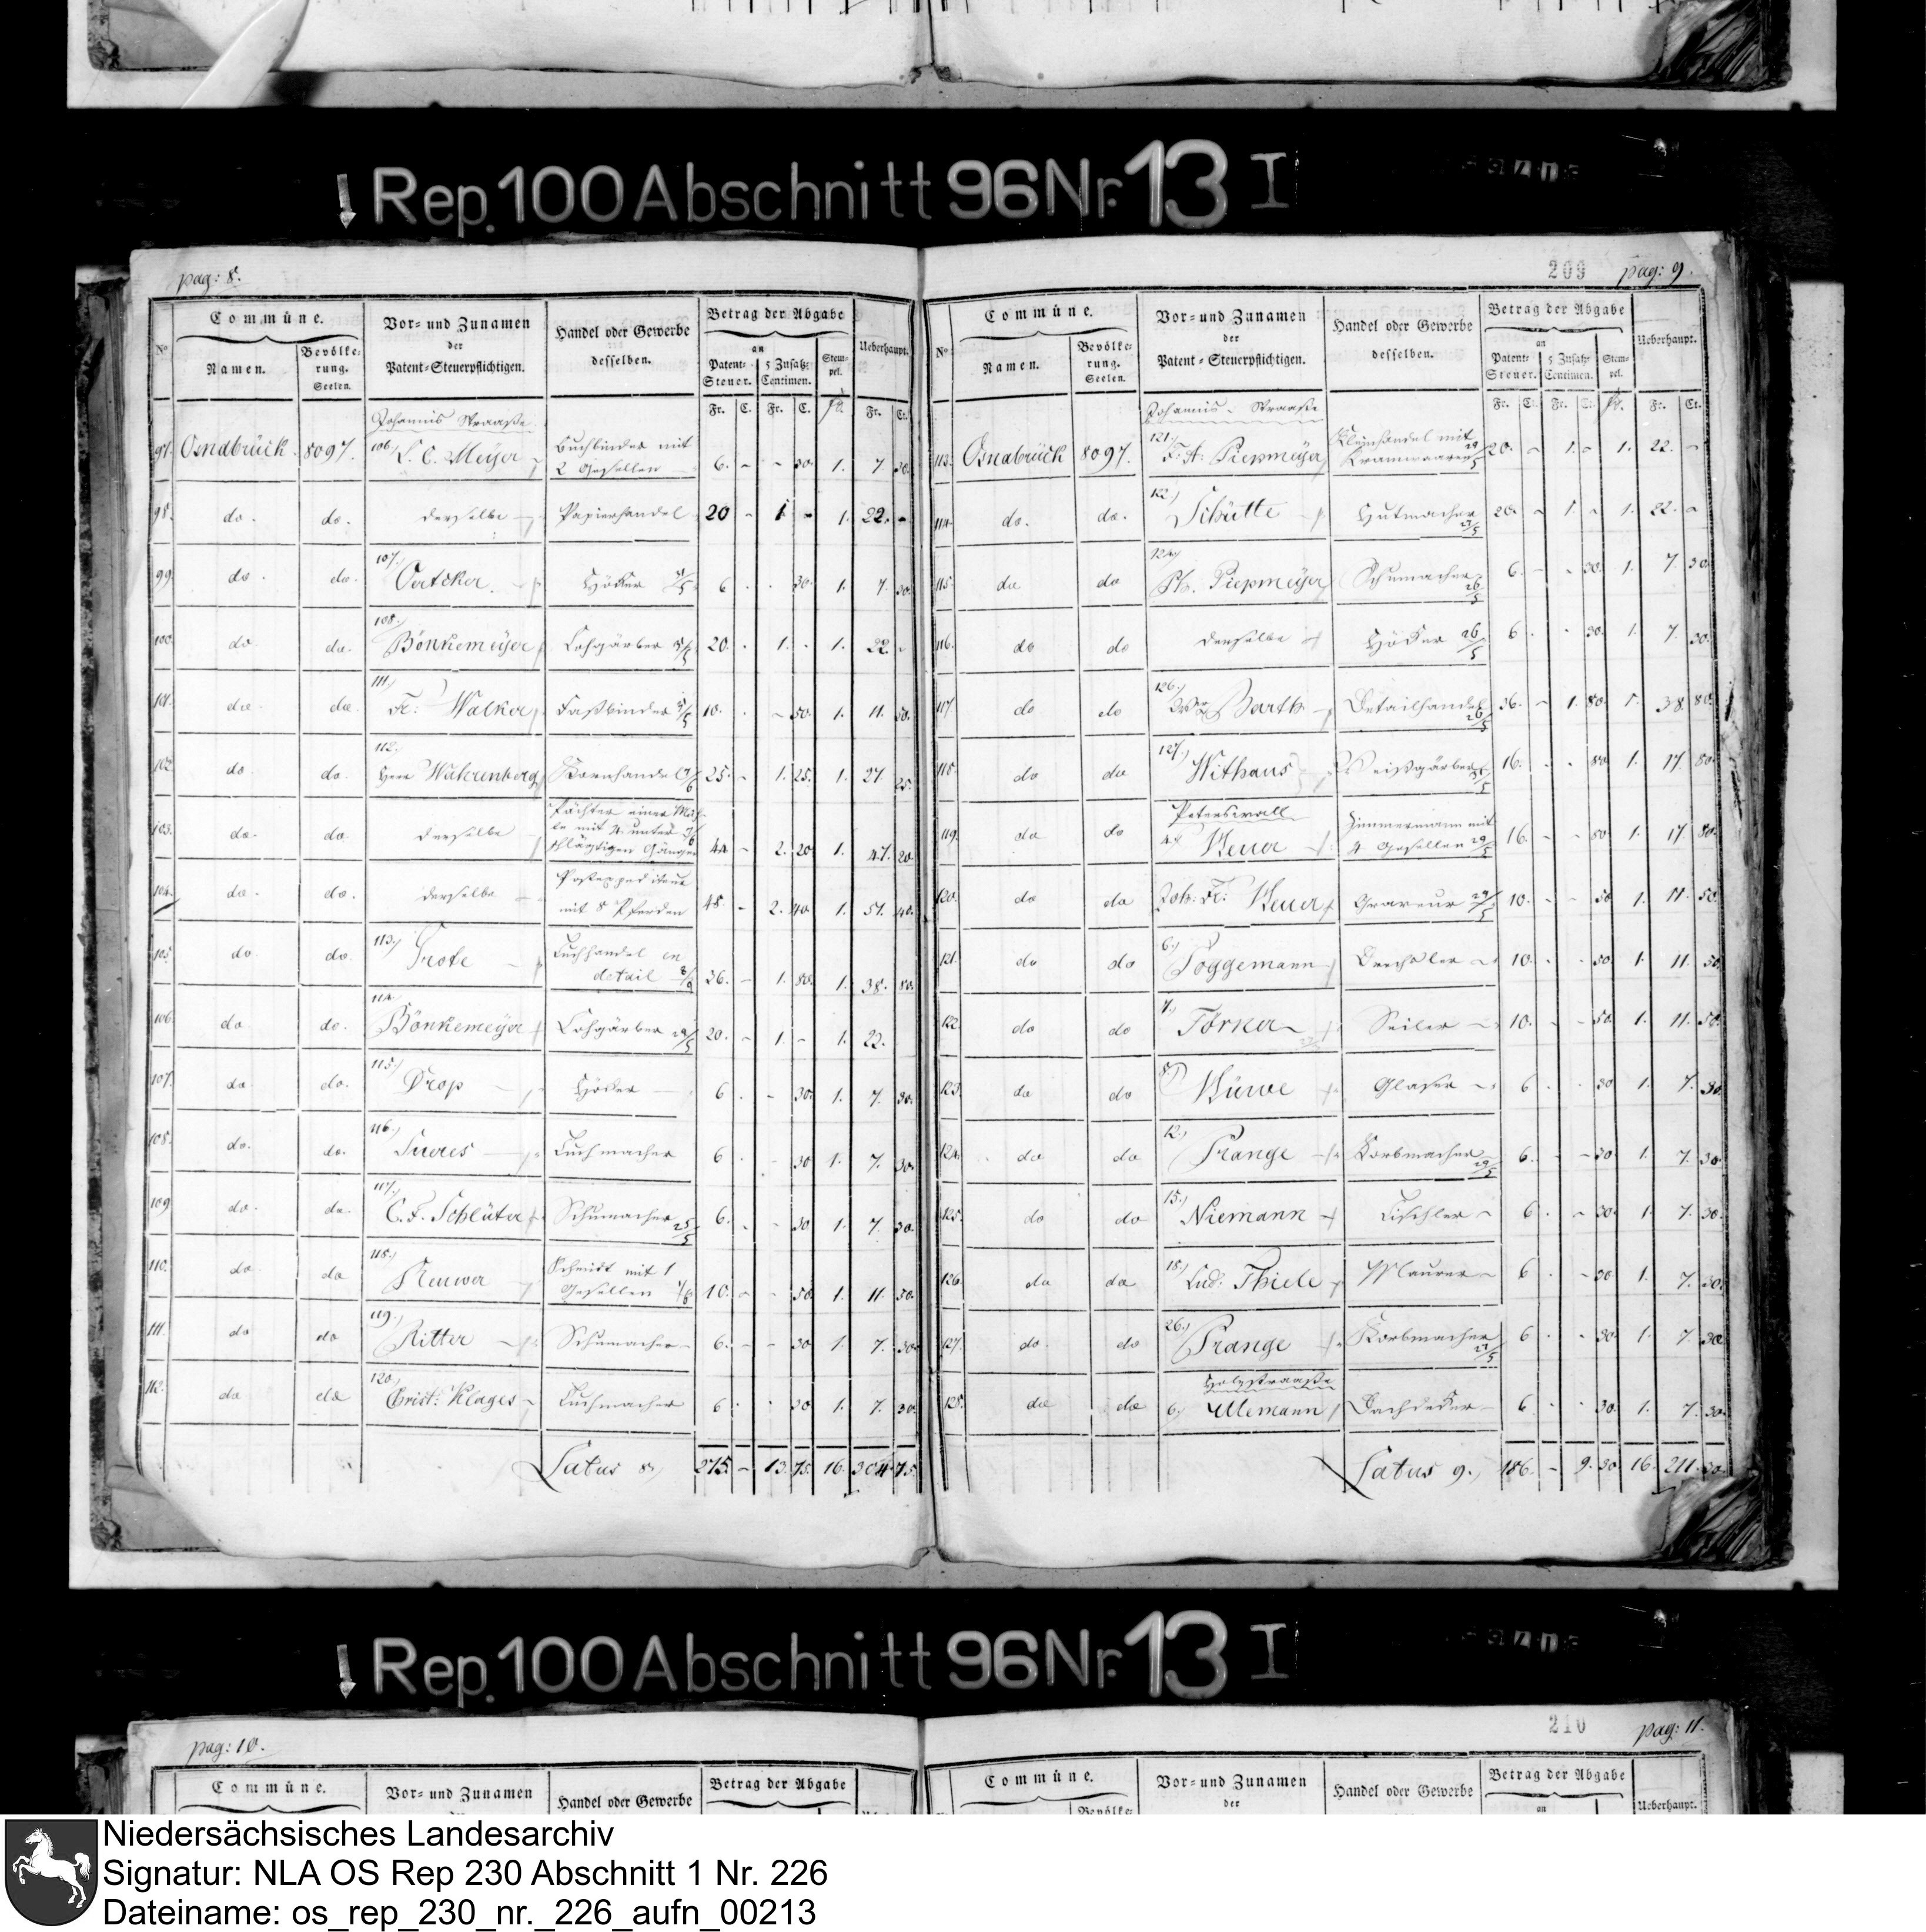 Rep. 100 Abschnitt 96 Nr. 13 I
pag: 8.
No.
Commüne.
Namen.
Bevölkerung.
Seelen.
Vor- und Zunamen
der
Patent-Steuerpflichtigen.
Handel oder Gewerbe
desselben.
Betrag der Abgabe
an
Patent-Steuer.
5 Zusatz-Centimen.
Stempel.
Ueberhaupt.
Fr. C. Fr. C. Fr. Fr. Ct.
Johannis Straaße
97. Osnabrück. 8097. 106. L. C. Meÿer Buchbinder mit
2 Gesellen 6. - - 30. 1. 7. 30.
98. do. do. derselbe Papierhandel 20 - 1. - 1. 22. -
99. do. do. 107. Oertcker. Höker 6 . . 30. 1. 7. 30.
100. do. do. 108. Bönkemeÿer Lohgärber 20. . 1. . 1. 22. .
101. do. do. 111. Fr: Walker Faßbinder 10. . - 50. 1. 11. 50.
102. do. do. 112. Herr Wahrenberg Kornhandel 25. - 1. 25. 1. 27 25.
103. do. do. derselbe Pächter einer Müh-
le mit 4 unter
schlägtigen Gängen 44 - 2. 20. 1. 47. 20.
104. do. do. derselbe Postexpediteur
mit 8 Pferden 48. - 2. 40. 1. 51. 40.
105. do. do. 113. Grote Tuchhandel en
detail 36. - 1. 80. 1. 38. 80.
106. do. do. 114. Bönkemeÿer Lohgärber 20. - 1. - 1. 22.
107. do. do. 115. Drop Höker 6 . - 30. 1. 7. 30.
108. do. do. 116. Sueres Tuchmacher 6 . . 30 1. 7. 30.
109 do. do. 117. C. F. Schlüter Schumacher 25/5 6. . . 30 1. 7. 30.
110. do. do 118. Kleuwer Schmidt mit 1
Gesellen 10. - - 50. 1. 11. 50.
111. do do 119. Ritter Schumacher 6. - - 30 1. 7. 30.
112. do do 120. Christ: Klages Tuchmacher 6 . . 30 1. 7. 30.
Latus 8. 275. - 13. 75. 16. 304. 75.
209
pag: 9.
No.
Commüne.
Namen.
Bevölkerung.
Seelen.
Vor- und Zunamen
der
Patent-Steuerpflichtigen.
Handel oder Gewerbe
desselben.
Betrag der Abgabe
an
Patent-Steuer.
5 Zusatz-Centimen.
Stempel.
Ueberhaupt.
Fr. Ct. Fr. C. Fr. Fr. Ct.
Johannis - Straaße
113. Osnabrück 8097. 121. F. A. Piepmeÿer Kleinhandel mit
Kramwaaren 20. - 1. - 1. 22. -
114. do. do. 122. Schütte Hutmacher 27/5 20. - 1. - 1. 22. -
115. do do 124. Ph. Piepmeÿer Schumacher 26/5 6. - - 30. 1. 7. 30.
116. do do derselbe Höker 26/5 6 . . 30. 1. 7. 30.
117. do do 126. Barth Detailhandel 26/5 36. - 1. 80. 1. 38. 80.
118. do do 127. Withaus Weißgärber 16. . . 80 1. 17. 80.
Peterswall
119. do do 4. Heuer Zimmermann mit
4 Gesellen 29/5 16. - - 80. 1. 17. 80.
120. do do Joh: Fr: Heuer Graveur 29/5 10. - - 50 1. 11. 50.
121. do do 6. Poggemann Drechsler 10. . . 50. 1. 11. 50.
122. do do 7. Förker Seiler 10. - - 50. 1. 11. 50.
123. do do 8. Hürve Glaser 6 . . 30 1. 7. 30.
124. do do 12. Prange Korbmacher 29/5 6. . - 30 1. 7. 30.
125. do do 15. Niemann Tischler 6 . - 30. 1. 7. 30.
126. do do 18. Lud: Thiele Maurer 6 . - 30. 1. 7. 30.
127. do do 26. Prange Korbmacher 27/5 6 . . 30. 1. 7. 30.
Holzstraaße
128. do do 6. Ulemann Dachdeker 6 . . 30. 1. 7. 30.
Latus 9. 186. - 9. 30 16. 211. 30.
Rep. 100 Abschnitt 96 Nr. 13 I
pag: 10.
Commüne.
Vor- und Zunamen
Handel oder Gewerbe
Betrag der Abgabe
210
pag: 11.
Commüne.
Vor- und Zunamen
der
Handel oder Gewerbe
Betrag der Abgabe
an
Ueberhaupt.
Niedersächsisches Landesarchiv
Signatur: NLA OS Rep 230 Abschnitt 1 Nr. 226
Dateiname: os_rep_230_nr._226_aufn_00213